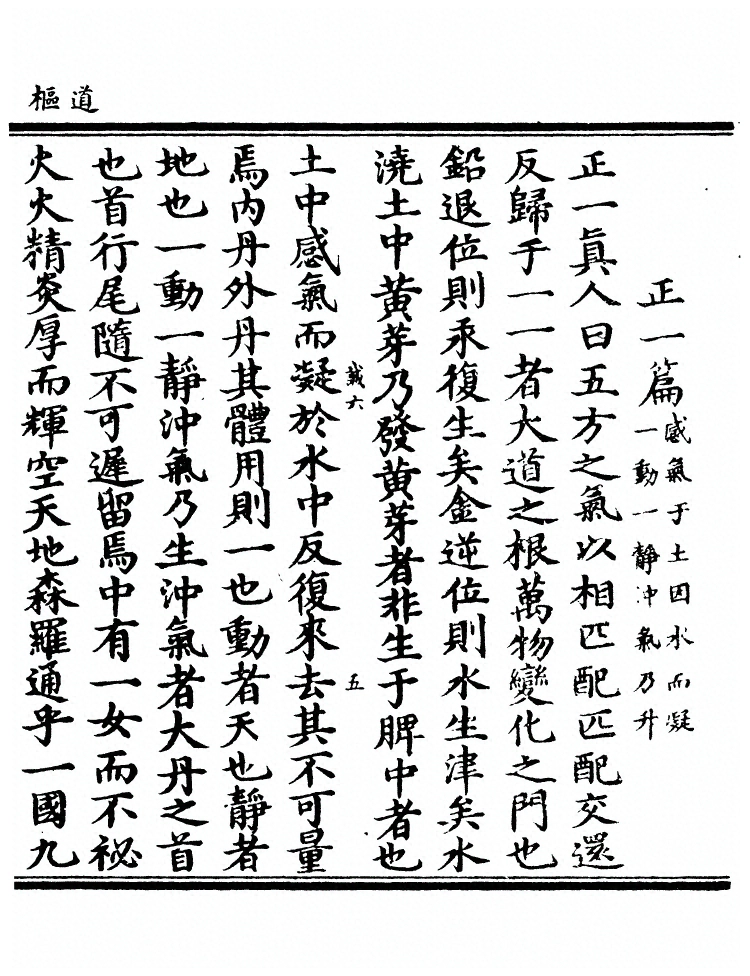 道樞
正一篇
感氣于土因水而凝
一動一靜冲氣乃升
正一眞人曰五方之氣以相匹配匹配交還
反歸于一一者大道之根萬物變化之門也
鉛退位則汞復生矣金逆位則水生津矣水
澆土中黃芽乃發黃芽者非生于脾中者也
土中感氣而凝於水中反復來去其不可量
焉内丹外丹其體用則一也動者天也靜者
地也一動一靜沖氣乃生沖氣者大丹之首
也首行尾隨不可遲留焉中有一女而不祕
火火精炎厚而輝空天地森羅通乎一國九
五